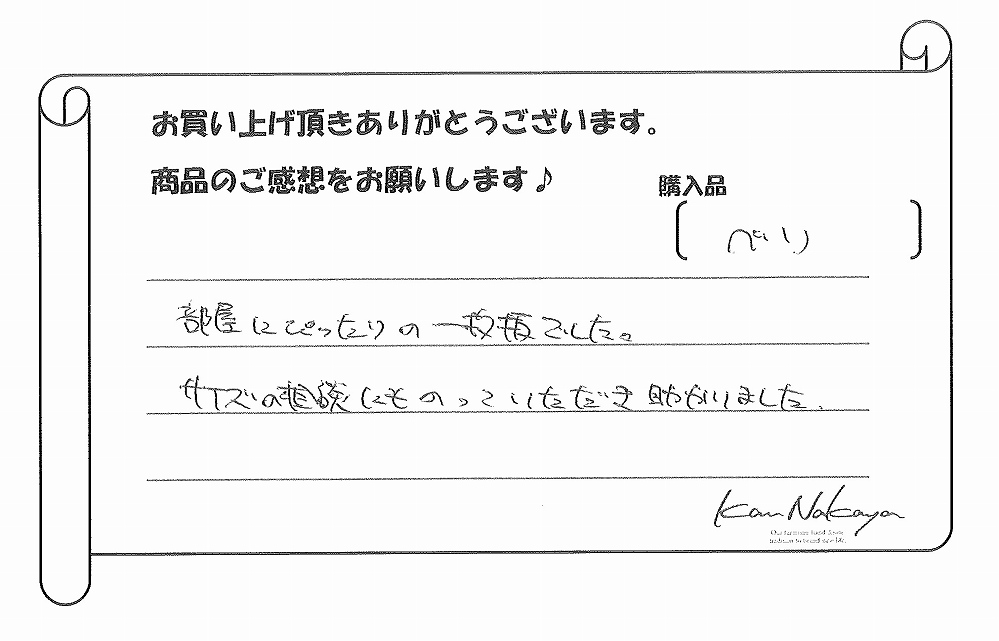 お買い上げ頂きありがとうございます。
商品のご感想をお願いします♪
購入品
ベリ
部屋にぴったりの一枚板でした。
サイズの相談にものっていただき助かりました.
Kan Nakaya
Our furniture hand down
tradition to brand new life.